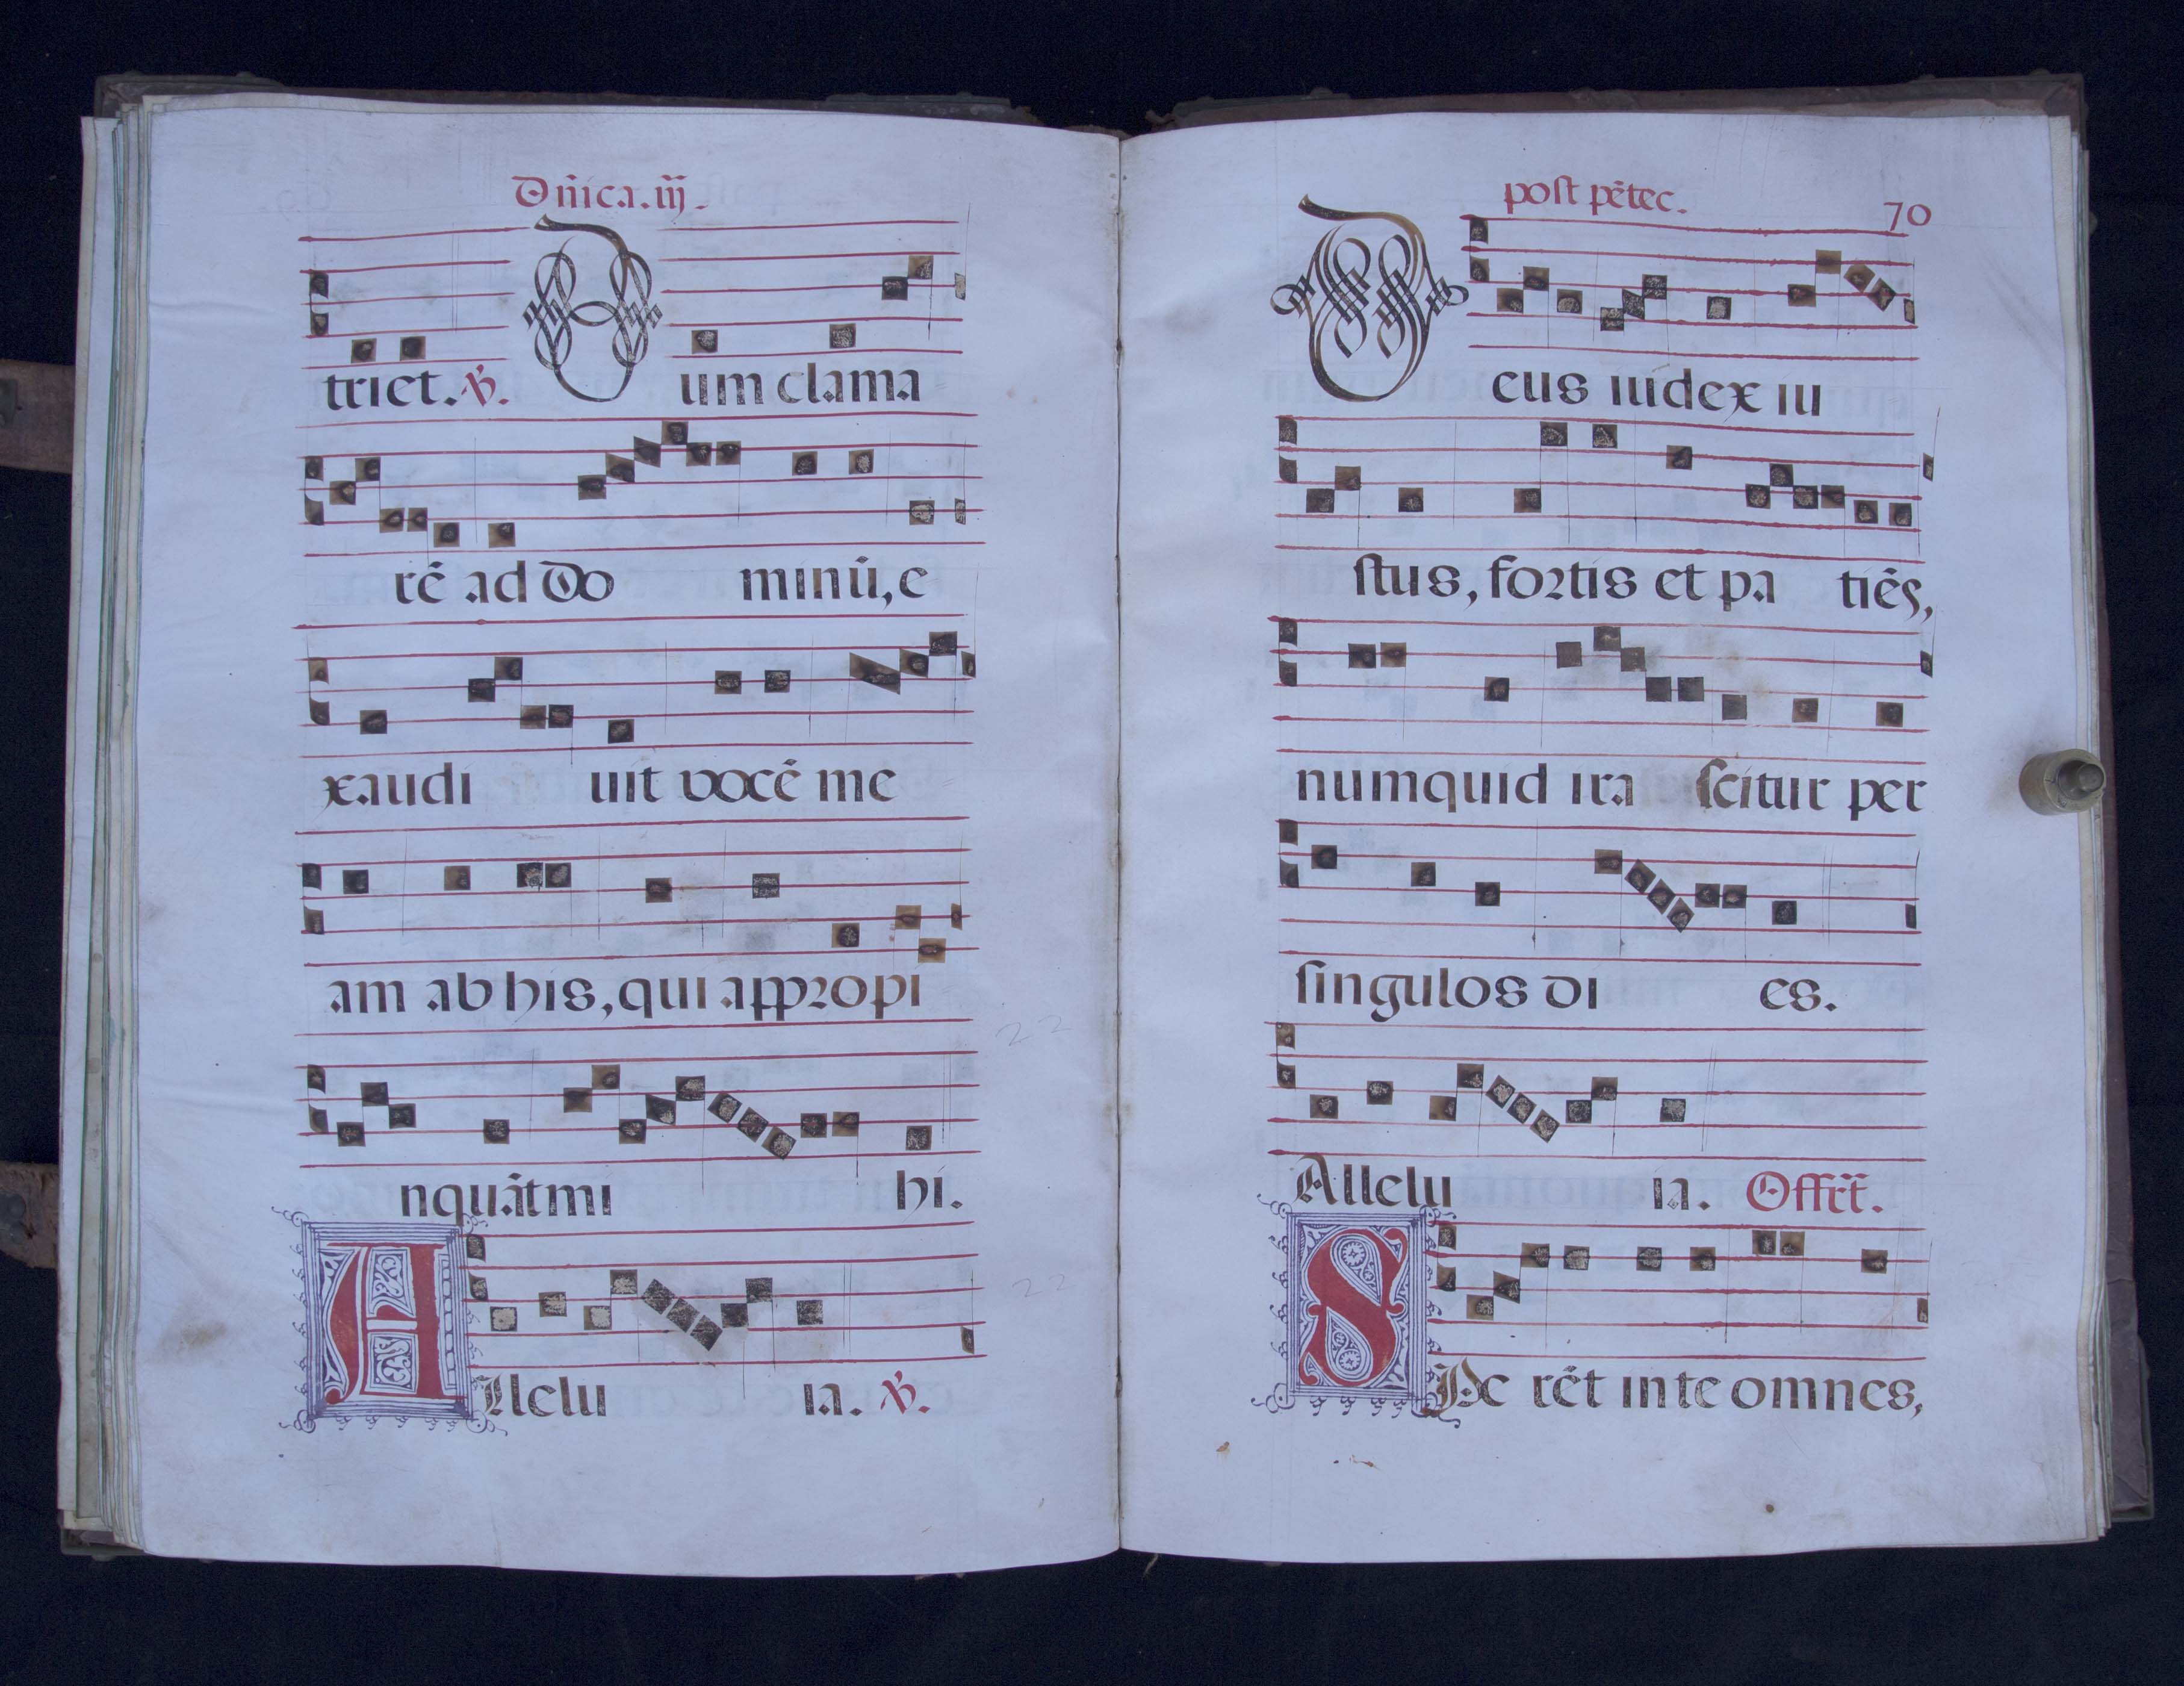 Dñica. iij.
triet. ℣. Dum clama
rē ad Do minū, e
xaudi uit vocē me
am ab his, qui appropi
nquāt mi hi.
Allelu ia. ℣.
post pētec. 70
Deus iudex iu
stus, fortis et pa tiēs,
numquid ira scitur per
singulos di es.
Allelu ia. Offrt̄.
SPe rēt in te omnes,
22
22